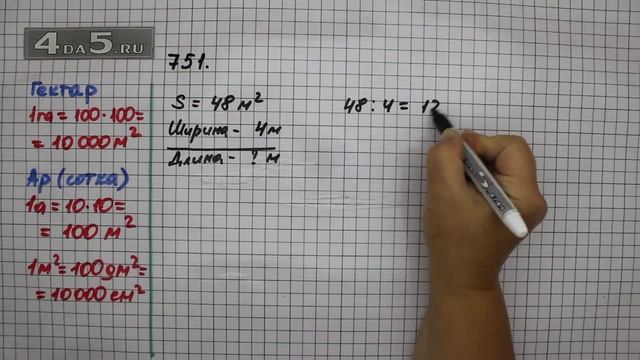 4DA5.RU
751.
Гектар
1га = 100·100=
= 10 000 м²
Ар (сотка)
1а = 10·10=
= 100 м²
1м² = 100дм² =
= 10000 см²
S = 48 м²
Ширина - 4м
Длина - ? м
48 : 4 = 12